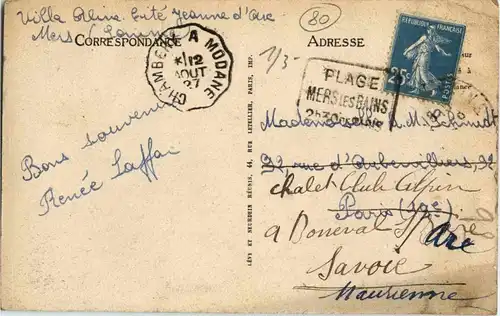 Villa Aline Cité Jeanne d'Arc
Mers Somme
CORRESPONDANCE
CHAMBERY A MODANE
12
AOUT
27
Bons souvenirs
Renée Laffa
LÉVY ET NEURDEIN RÉUNIS, 44, RUE LETELLIER, PARIS, IMP.
80
1/3
ADRESSE
REPUBLIQUE FRANÇAISE
25c
PLAGE
MERS LES BAINS
2h30 DE PARIS
Mademoiselle A.M. Schmidt
32 rue d'Aubervilliers, 32
Chalet Club Alpin
Paris (19e)
à Bonneval s/ Arc
Savoie
Maurienne